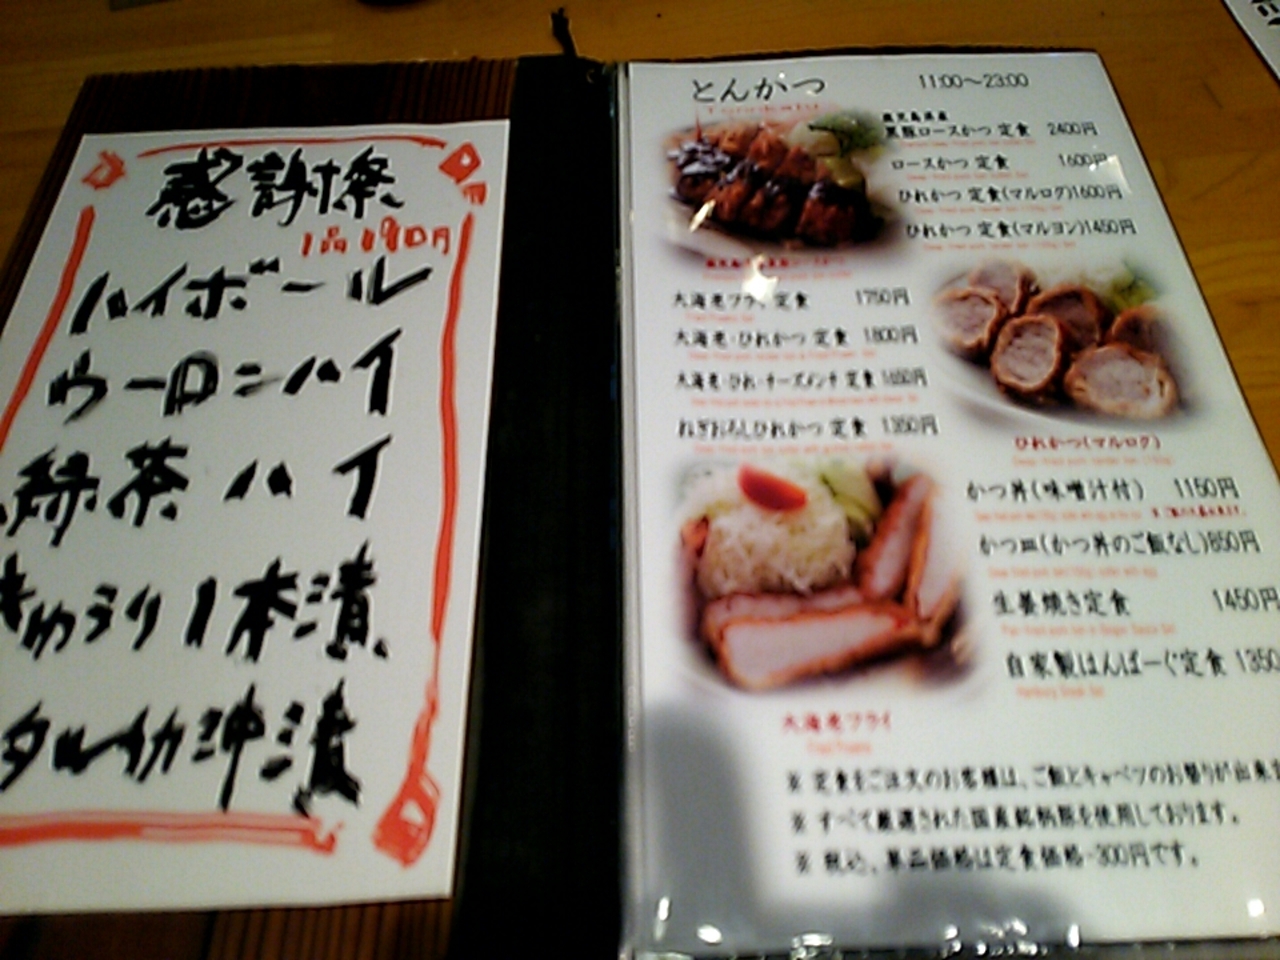 感謝祭
1品190円
ハイボール
ウーロンハイ
緑茶ハイ
きゅうり1本漬
タルイカ沖漬
とんかつ 11:00～23:00
鹿児島県産
黒豚ロースかつ 定食 2400円
ロースかつ 定食 1600円
ひれかつ 定食(マルログ)1600円
ひれかつ 定食(マルヨン)1450円
大海老フライ 定食 1750円
大海老・ひれかつ 定食 1800円
大海老・ひれ・チーズメンチ 定食 1650円
ねぎおろしひれかつ 定食 1350円
ひれかつ(マルログ)
かつ丼(味噌汁付) 1150円
かつ皿(かつ丼のご飯なし)850円
生姜焼き定食 1450円
自家製はんばーぐ定食 1350
大海老フライ
※ 定食をご注文のお客様は、ご飯とキャベツのお替りが出来
※ すべて厳選された国産銘柄豚を使用しております。
※ 税込、単品価格は定食価格-300円です。